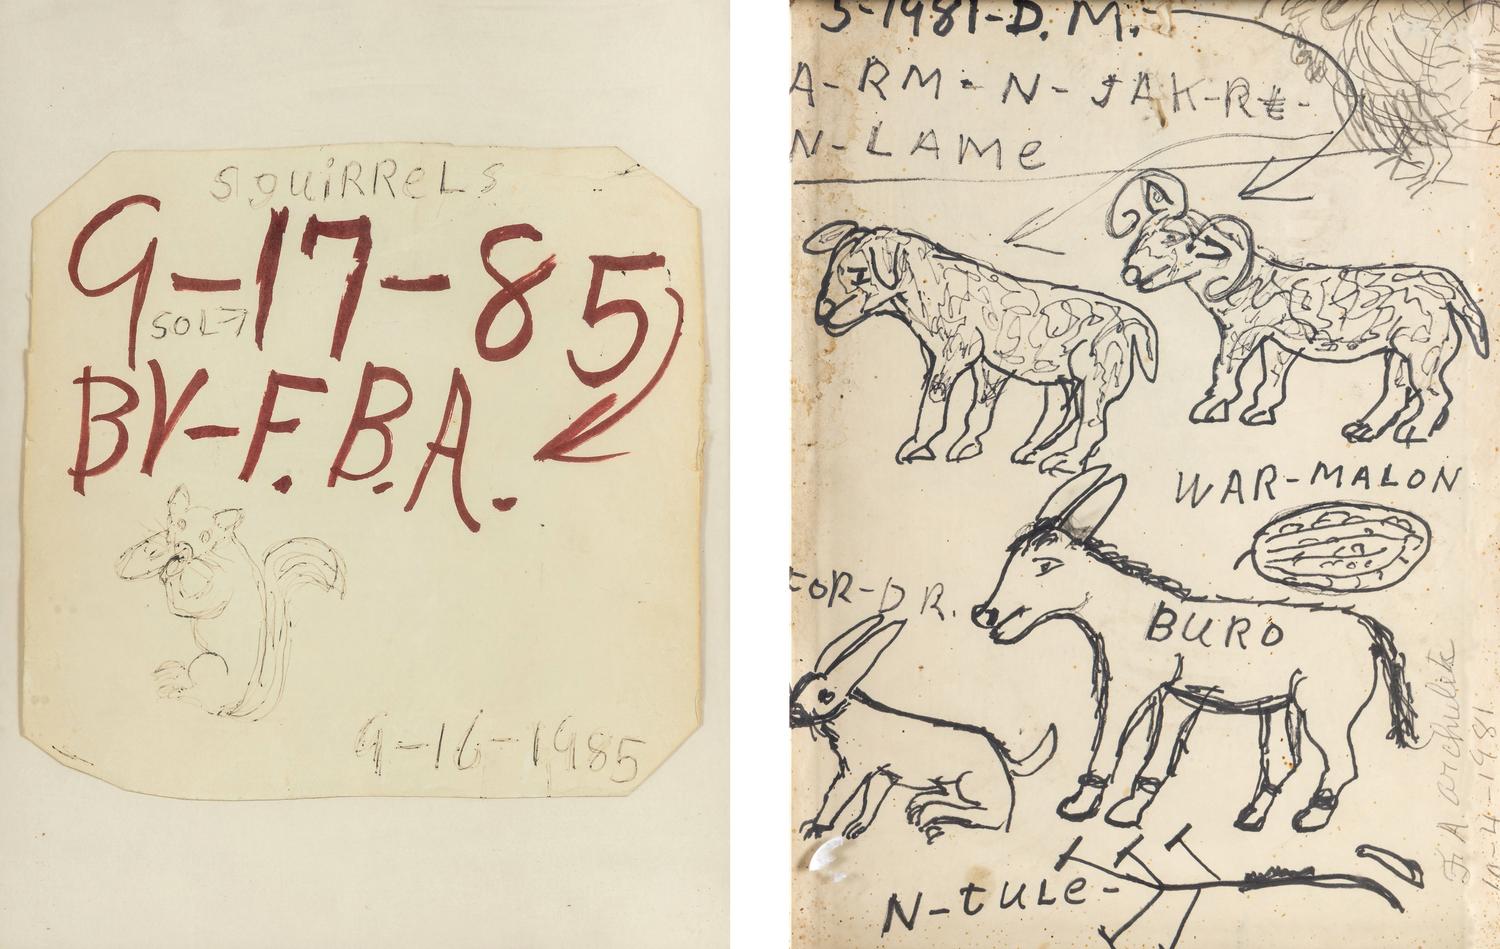 SQUiRReLS
9-17-85
SOLd
BY-F.B.A.
9-16-1985
5-1981-D.M.-
A-RM-N-JAK-Re-
N-LAMe
WAR-MALON
tOR-DR.
BURO
N-tULe-
F. A archuleta
10-4-1981